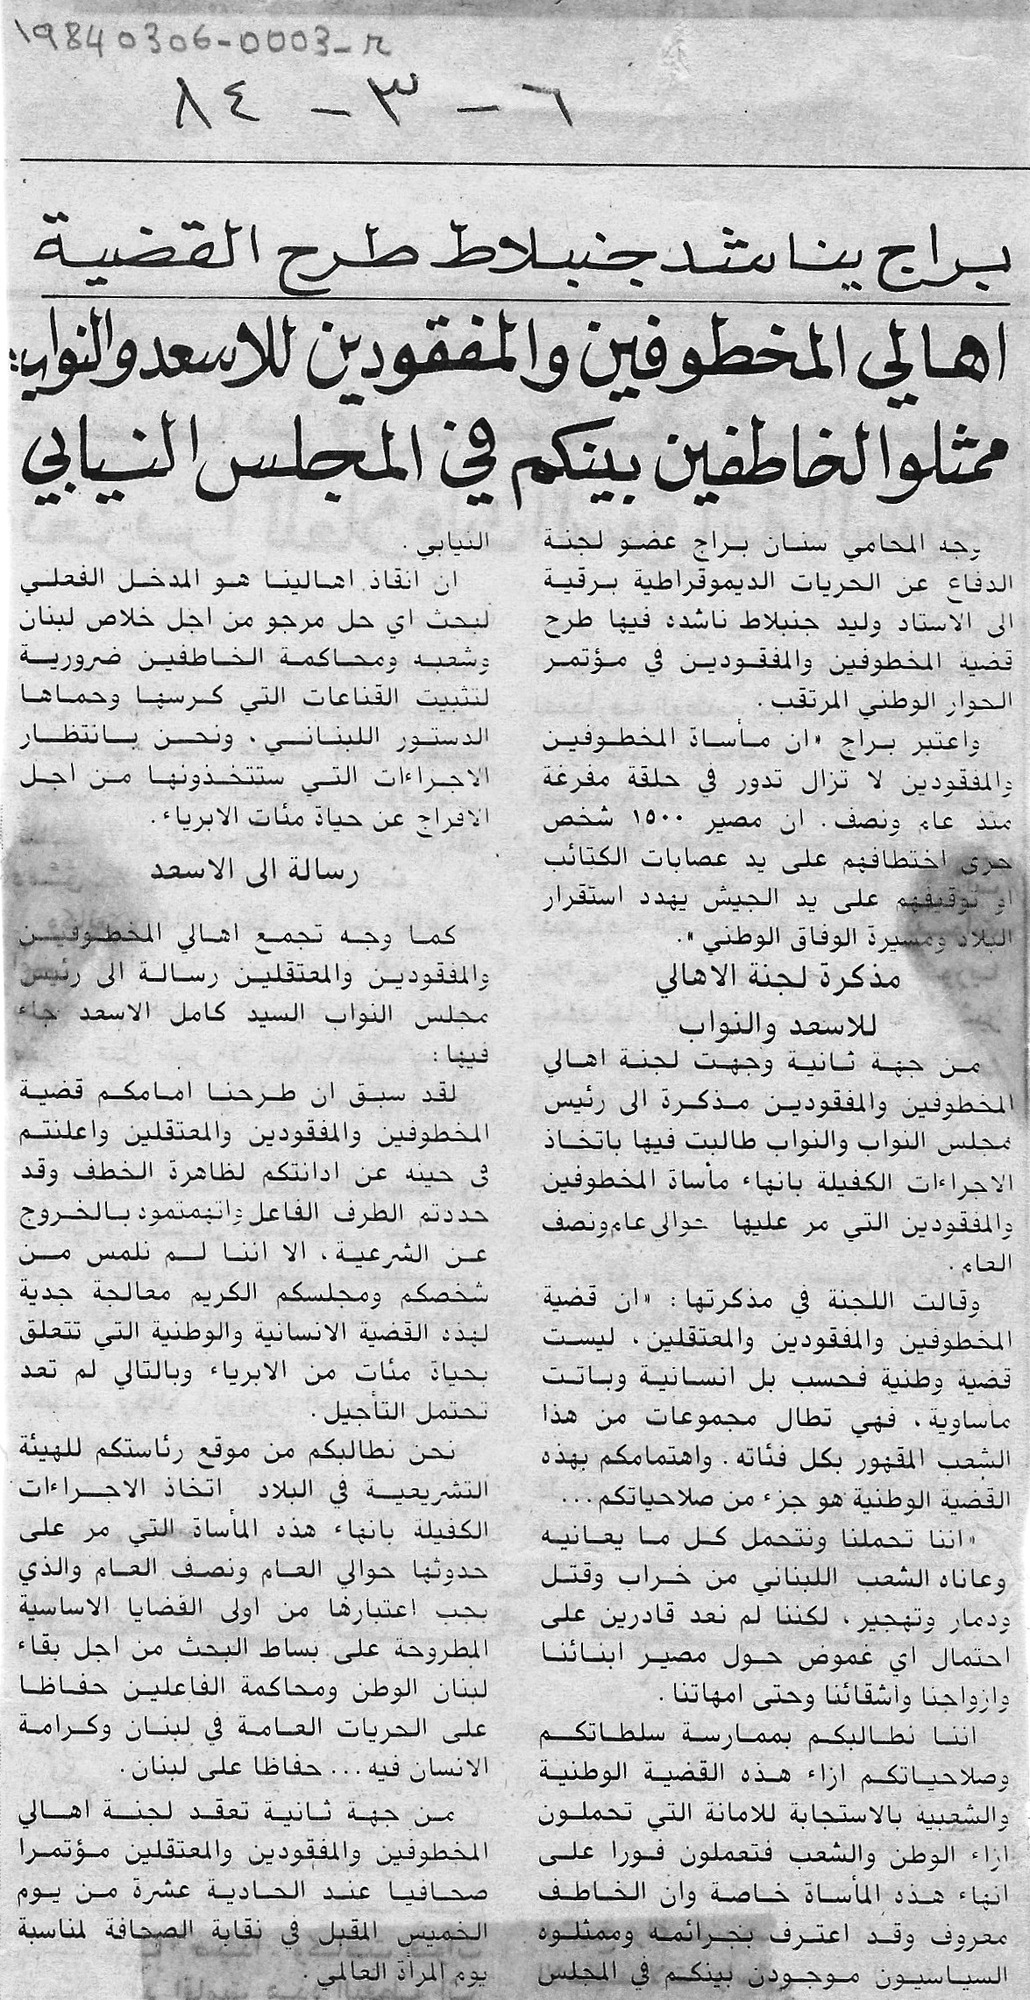 19840306-0003-r
٦ - ٣ - ٨٤
براج يناشد جنبلاط طرح القضية
اهالي المخطوفين والمفقودين للاسعد والنواب:
ممثلو الخاطفين بينكم في المجلس النيابي
وجه المحامي سنان براج عضو لجنة
الدفاع عن الحريات الديموقراطية برقية
الى الاستاد وليد جنبلاط ناشده فيها طرح
قضية المخطوفين والمفقودين في مؤتمر
الحوار الوطني المرتقب.
واعتبر براج «ان مأساة المخطوفين
والمفقودين لا تزال تدور في حلقة مفرغة
منذ عام ونصف. ان مصير ١٥٠٠ شخص
جرى اختطافهم على يد عصابات الكتائب
او توقيفهم على يد الجيش يهدد استقرار
البلاد ومسيرة الوفاق الوطني».
مذكرة لجنة الاهالي
للاسعد والنواب
من جهة ثانية وجهت لجنة اهالي
المخطوفين والمفقودين مذكرة الى رئيس
مجلس النواب والنواب طالبت فيها باتخاذ
الاجراءات الكفيلة بانهاء مأساة المخطوفين
والمفقودين التي مر عليها حوالى عام ونصف
العام.
وقالت اللجنة في مذكرتها: «ان قضية
المخطوفين والمفقودين والمعتقلين، ليست
قضية وطنية فحسب بل انسانية وباتت
مأساوية، فهي تطال مجموعات من هذا
الشعب المقهور بكل فئاته. واهتمامكم بهذه
القضية الوطنية هو جزء من صلاحياتكم...
«اننا تحملنا ونتحمل كل ما يعانيه
وعاناه الشعب اللبناني من خراب وقتل
ودمار وتهجير، لكننا لم نعد قادرين على
احتمال اي غموض حول مصير ابنائنا
وازواجنا وأشقائنا وحتى امهاتنا.
اننا نطالبكم بممارسة سلطاتكم
وصلاحياتكم ازاء هذه القضية الوطنية
والشعبيه بالاستجابة للامانة التي تحملون
ازاء الوطن والشعب فتعملون فورا على
انهاء هذه المأساة خاصة وان الخاطف
معروف وقد اعترف بجرائمه وممثلوه
السياسيون موجودن بينكم في المجلس
النيابي.
ان انقاذ اهالينا هو المدخل الفعلي
لبحث اي حل مرجو من اجل خلاص لبنان
وشعبه ومحاكمة الخاطفين ضرورية
لتثبيت القناعات التي كرسها وحماها
الدستور اللبناني، ونحن بانتظار
الاجراءات التي ستتخذونها من اجل
الافراج عن حياة مئات الابرياء.
رسالة الى الاسعد
كما وجه تجمع اهالي المخطوفين
والمفقودين والمعتقلين رسالة الى رئيس
مجلس النواب السيد كامل الاسعد جاء
فيها:
لقد سبق ان طرحنا امامكم قضية
المخطوفين والمفقودين والمعتقلين واعلنتم
في حينه عن ادانتكم لظاهرة الخطف وقد
حددتم الطرف الفاعل واتهمتموه بالخروج
عن الشرعية، الا اننا لم نلمس من
شخصكم ومجلسكم الكريم معالجة جدية
لهذه القضية الانسانية والوطنية التي تتعلق
بحياة مئات من الابرياء وبالتالي لم تعد
تحتمل التأجيل.
نحن نطالبكم من موقع رئاستكم للهيئة
التشريعية في البلاد اتخاذ الاجراءات
الكفيلة بانهاء هذه المأساة التي مر على
حدوثها حوالي العام ونصف العام والذي
يجب اعتبارها من اولى القضايا الاساسية
المطروحة على بساط البحث من اجل بقاء
لبنان الوطن ومحاكمة الفاعلين حفاظا
على الحريات العامة في لبنان وكرامة
الانسان فيه... حفاظا على لبنان.
من جهة ثانية تعقد لجنة اهالي
المخطوفين والمفقودين والمعتقلين مؤتمرا
صحافيا عند الحادية عشرة من يوم
الخميس المقبل في نقابة الصحافة لمناسبة
يوم المرأة العالمي.